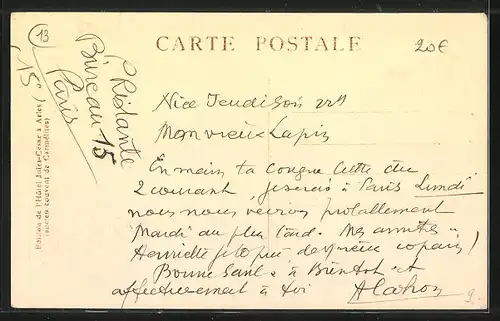 CARTE POSTALE
20€
13
15
P Restante
Bureau 15
Paris
Edition de l'Hôtel Jules-César à Arles
(ancien couvent de Carmélites)
Nice Jeudi Soir
Mon vieux Lapin
En mains ta longue lettre du
2 courant, je serai à Paris Lundi
nous nous verrons probablement
Mardi au plus tard. Mes amitiés
Henriette
Bonne Santé à Bientôt et
affectueusement à toi